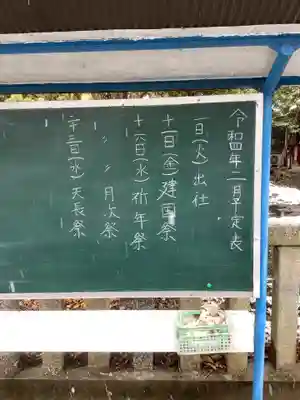 令和四年二月予定表
一日(火)出仕
十一日(金)建国祭
十六日(水)祈年祭
〃 〃 月次祭
二十三日(水)天長祭